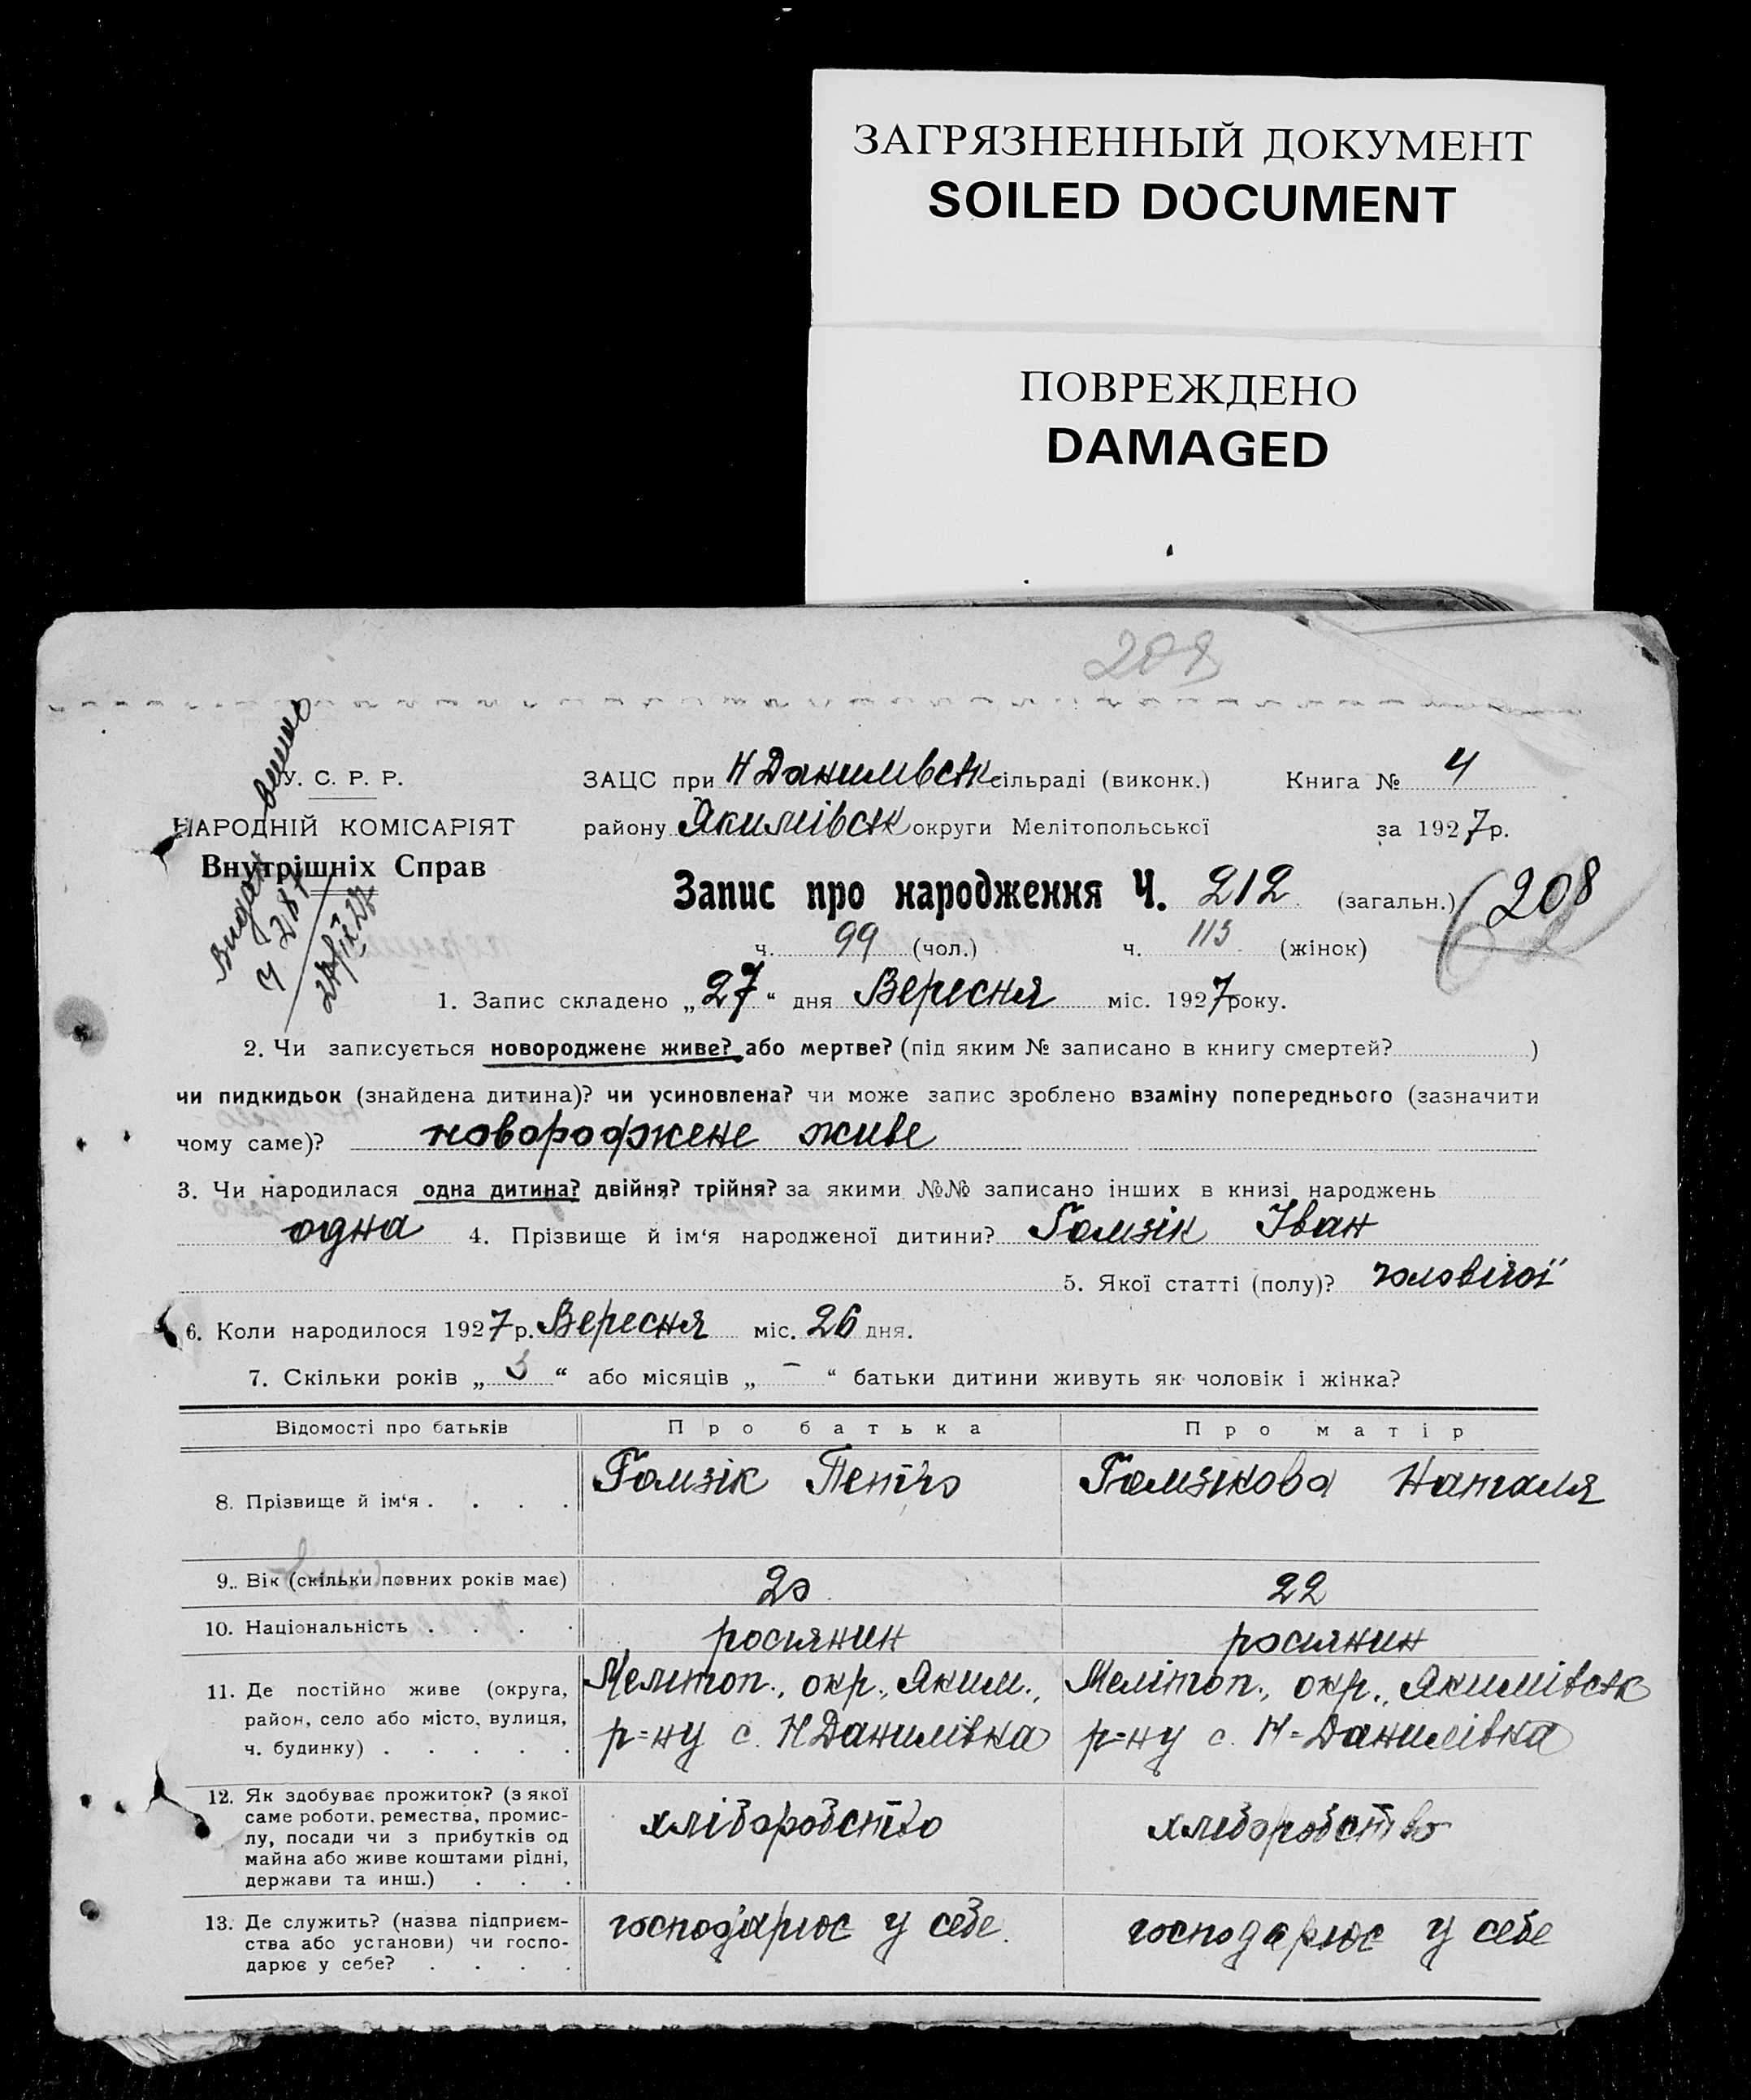 ЗАГРЯЗНЕННЫЙ ДОКУМЕНТ
SOILED DOCUMENT
ПОВРЕЖДЕНО
DAMAGED
208
У. С. Р. Р.
НАРОДНІЙ КОМІСАРІЯТ
Внутрішніх Справ
ЗАЦС при Н Данилівск сільраді (виконк.) Книга № 4
району Якимівск округи Мелітопольської за 1927 р.
Запис про народження Ч. 212 (загальн.) 208
ч. 99 (чол.) ч. 113 (жінок)
1. Запис складено „27“ дня Вересня міс. 1927 року.
2. Чи записується новороджене живе? або мертве? (під яким № записано в книгу смертей? )
чи пидкидьок (знайдена дитина)? чи усиновлена? чи може запис зроблено взаміну попереднього (зазначити
чому саме)? новороджене живе
3. Чи народилася одна дитина? двійня? трійня? за якими №№ записано інших в книзі народжень
одна 4. Прізвище й ім‘я народженої дитини? Гомзік Іван
5. Якої статті (полу)? чоловічої
6. Коли народилося 1927 р. Вересня міс. 26 дня.
7. Скільки років „3“ або місяців „–“ батьки дитини живуть як чоловік і жінка?
Відомості про батьків Про батька Про матір
8. Прізвище й ім‘я . . . . Гомзік Петро Гомзікова Наталя
9. Вік (скільки повних років має) 20 22
10. Національність . . . . росіянин росіянин
11. Де постійно живе (округа, Меліт​оп., окр., Яким., Мелітоп., окр., Якимівск
район, село або місто, вулиця, р=ну с. Н Данилівка р=ну с. Н=Данилівка
ч. будинку) . . . . .
12. Як здобуває прожиток? (з якої
саме роботи, ремества, промис-
лу, посади чи з прибутків од хліборобство хліборобство
майна або живе коштами рідні,
держави та инш.) . . .
13. Де служить? (назва підприєм- господарює у себе. господарює у себе
ства або установи) чи госпо-
дарює у себе? . . . .